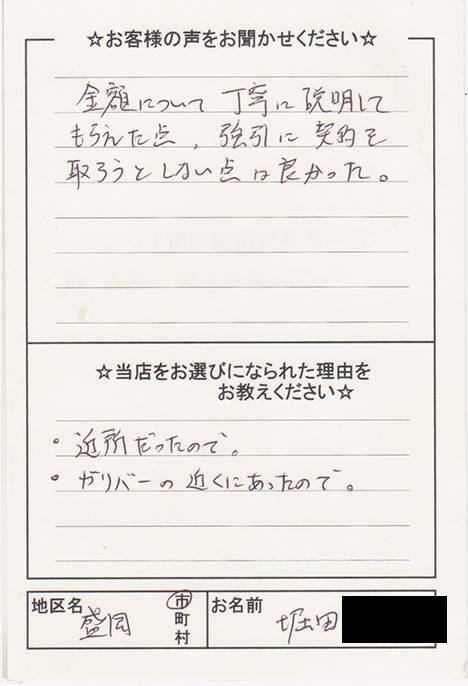 ☆お客様の声をお聞かせください☆
金額について丁寧に説明して
もらえた点、強引に契約を
取ろうとしない点は良かった。
☆当店をお選びになられた理由を
お教えください☆
・近所だったので。
・ガリバーの近くにあったので。
地区名 盛岡 市
町
村
お名前 堀田